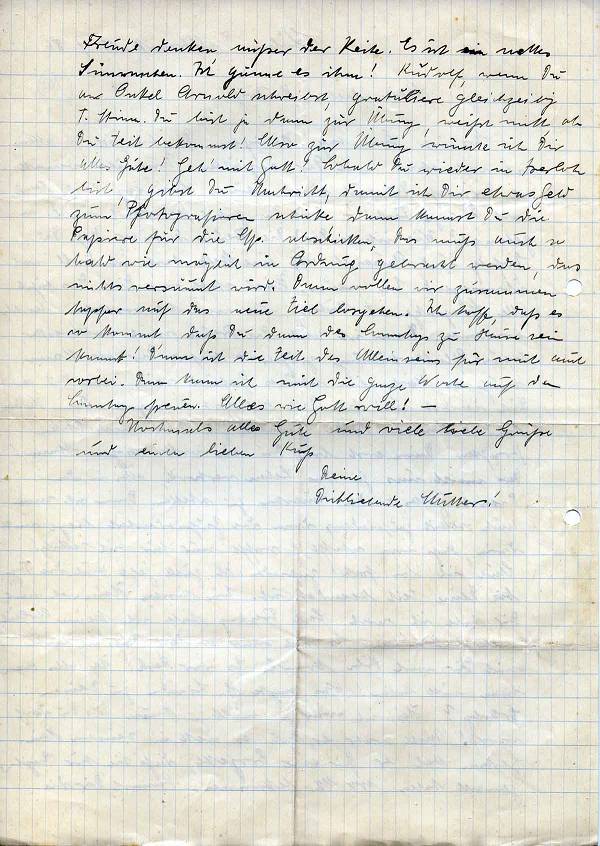 Freude denken außer der Reihe. Es ist ein nettes
Ich gönne es ihm! Rudolf, wenn Du
an Onkel Arnold schreibst, gratuliere gleichzeitig
T. Du bist ja dann zur Übung, weiß nicht ob
Du Zeit bekommst! Also zur Übung wünsche ich Dir
alles Gute! Geh' mit Gott! Sobald Du wieder in Iserlohn
bist, gibst Du Nachricht, damit ich Dir etwas Geld
zum Photografieren schicke dann kannst Du die
Papiere für die abschicken, das muß auch so
bald wie möglich in Ordnung gebracht werden, das
nichts versäumt wird. Dann wollen wir zusammen
tapfer auf das neue Ziel losgehen. Ich hoffe, daß es
so kommt daß Du dann des Sonntags zu Hause sein
kannst! Dann ist die Zeit des Alleinseins für mich auch
vorbei. Dann kann ich mich die ganze Woche auf den
Sonntag freuen. Alles wie Gott will! —
Nochmals alles Gute und viele liebe Grüße
und einen lieben Kuß
Deine
Dichliebende Mutter!